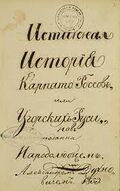 Истинная
Исторія
Карпато-Россовъ
или
Угорскихъ Руси
новъ
Народолюбцемъ
Александромъ Духно
вичемъ 1853